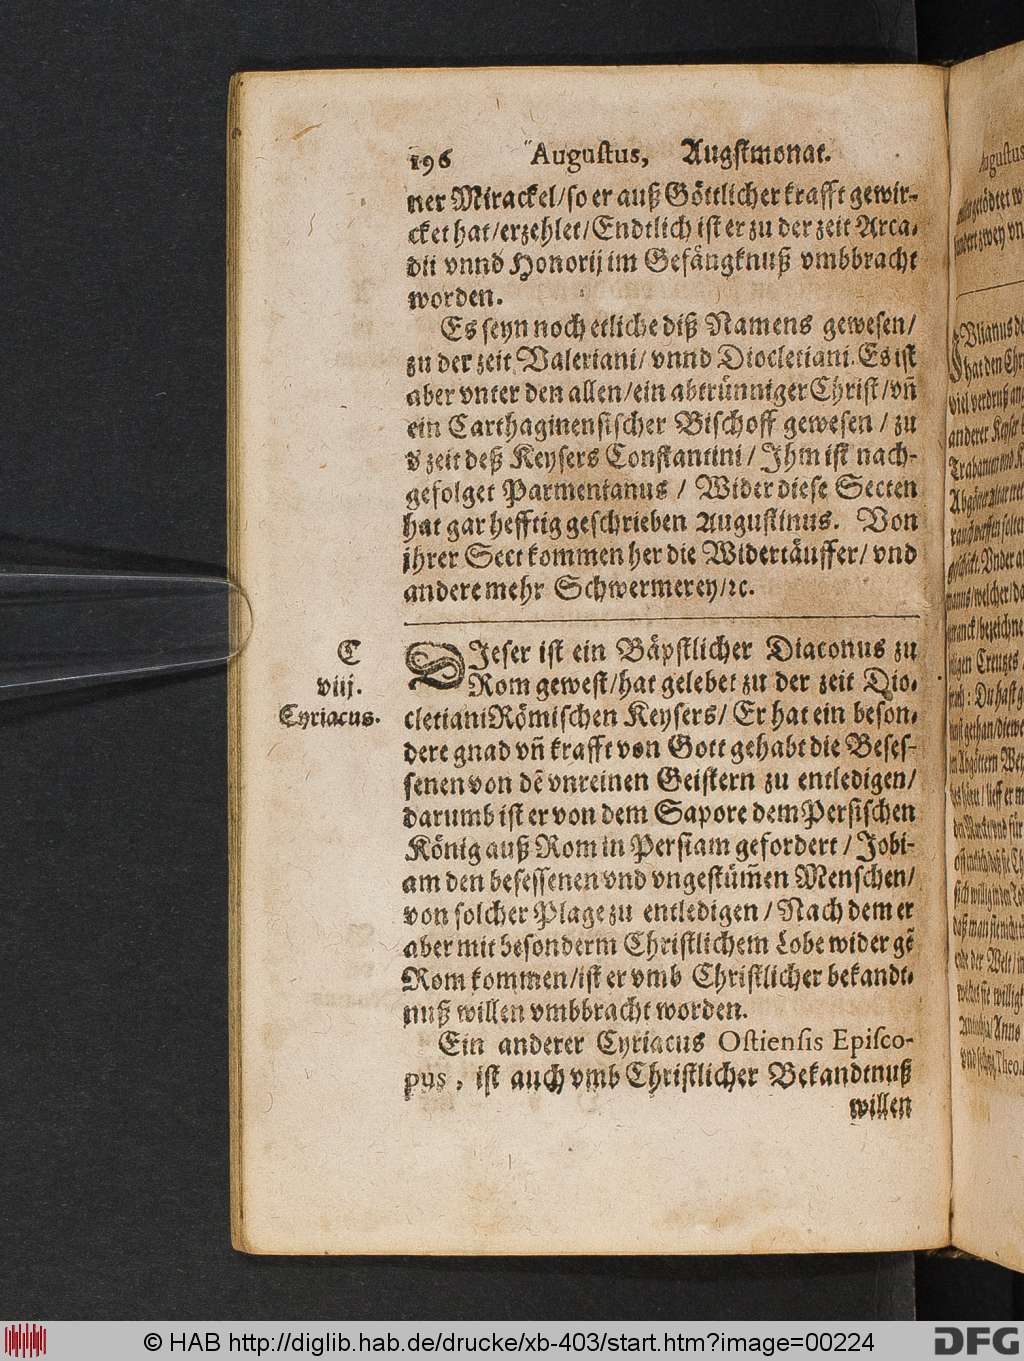 196 Augustus, Augstmonat.
ner Mirackel/so er auß Göttlicher krafft gewir-
cket hat/erzehlet/Endtlich ist er zu der zeit Arca-
dii vnnd Honorij im Gefängknuß vmbbracht
worden.
Es seyn noch etliche diß Namens gewesen/
zu der zeit Valeriani/ vnnd Diocletiani. Es ist
aber vnter den allen/ein abtrünniger Christ/vñ
ein Carthaginensischer Bischoff gewesen / zu
d zeit deß Keysers Constantini / Ihm ist nach-
gefolget Parmenianus / Wider diese Secten
hat gar hefftig geschrieben Augustinus. Von
jhrer Sect kommen her die Widertäuffer/ vnd
andere mehr Schwermerey/ꝛc.
C
viij.
Cyriacus.
DIeser ist ein Bäpstlicher Diaconus zu
Rom gewest/hat gelebet zu der zeit Dio-
cletiani Römischen Keysers/ Er hat ein beson-
dere gnad vñ krafft von Gott gehabt die Beses-
senen von dẽ vnreinen Geistern zu entledigen/
darumb ist er von dem Sapore dem Persischen
König auß Rom in Persiam gefordert / Jobi-
am den besessenen vnd vngestüm̃en Menschen/
von solcher Plage zu entledigen / Nach dem er
aber mit besonderm Christlichem Lobe wider gẽ
Rom kommen/ist er vmb Christlicher bekandt-
nuß willen vmbbracht worden.
Ein anderer Cyriacus Ostiensis Episco-
pus, ist auch vmb Christlicher Bekandtnuß
willen
© HAB http://diglib.hab.de/drucke/xb-403/start.htm?image=00224
DFG